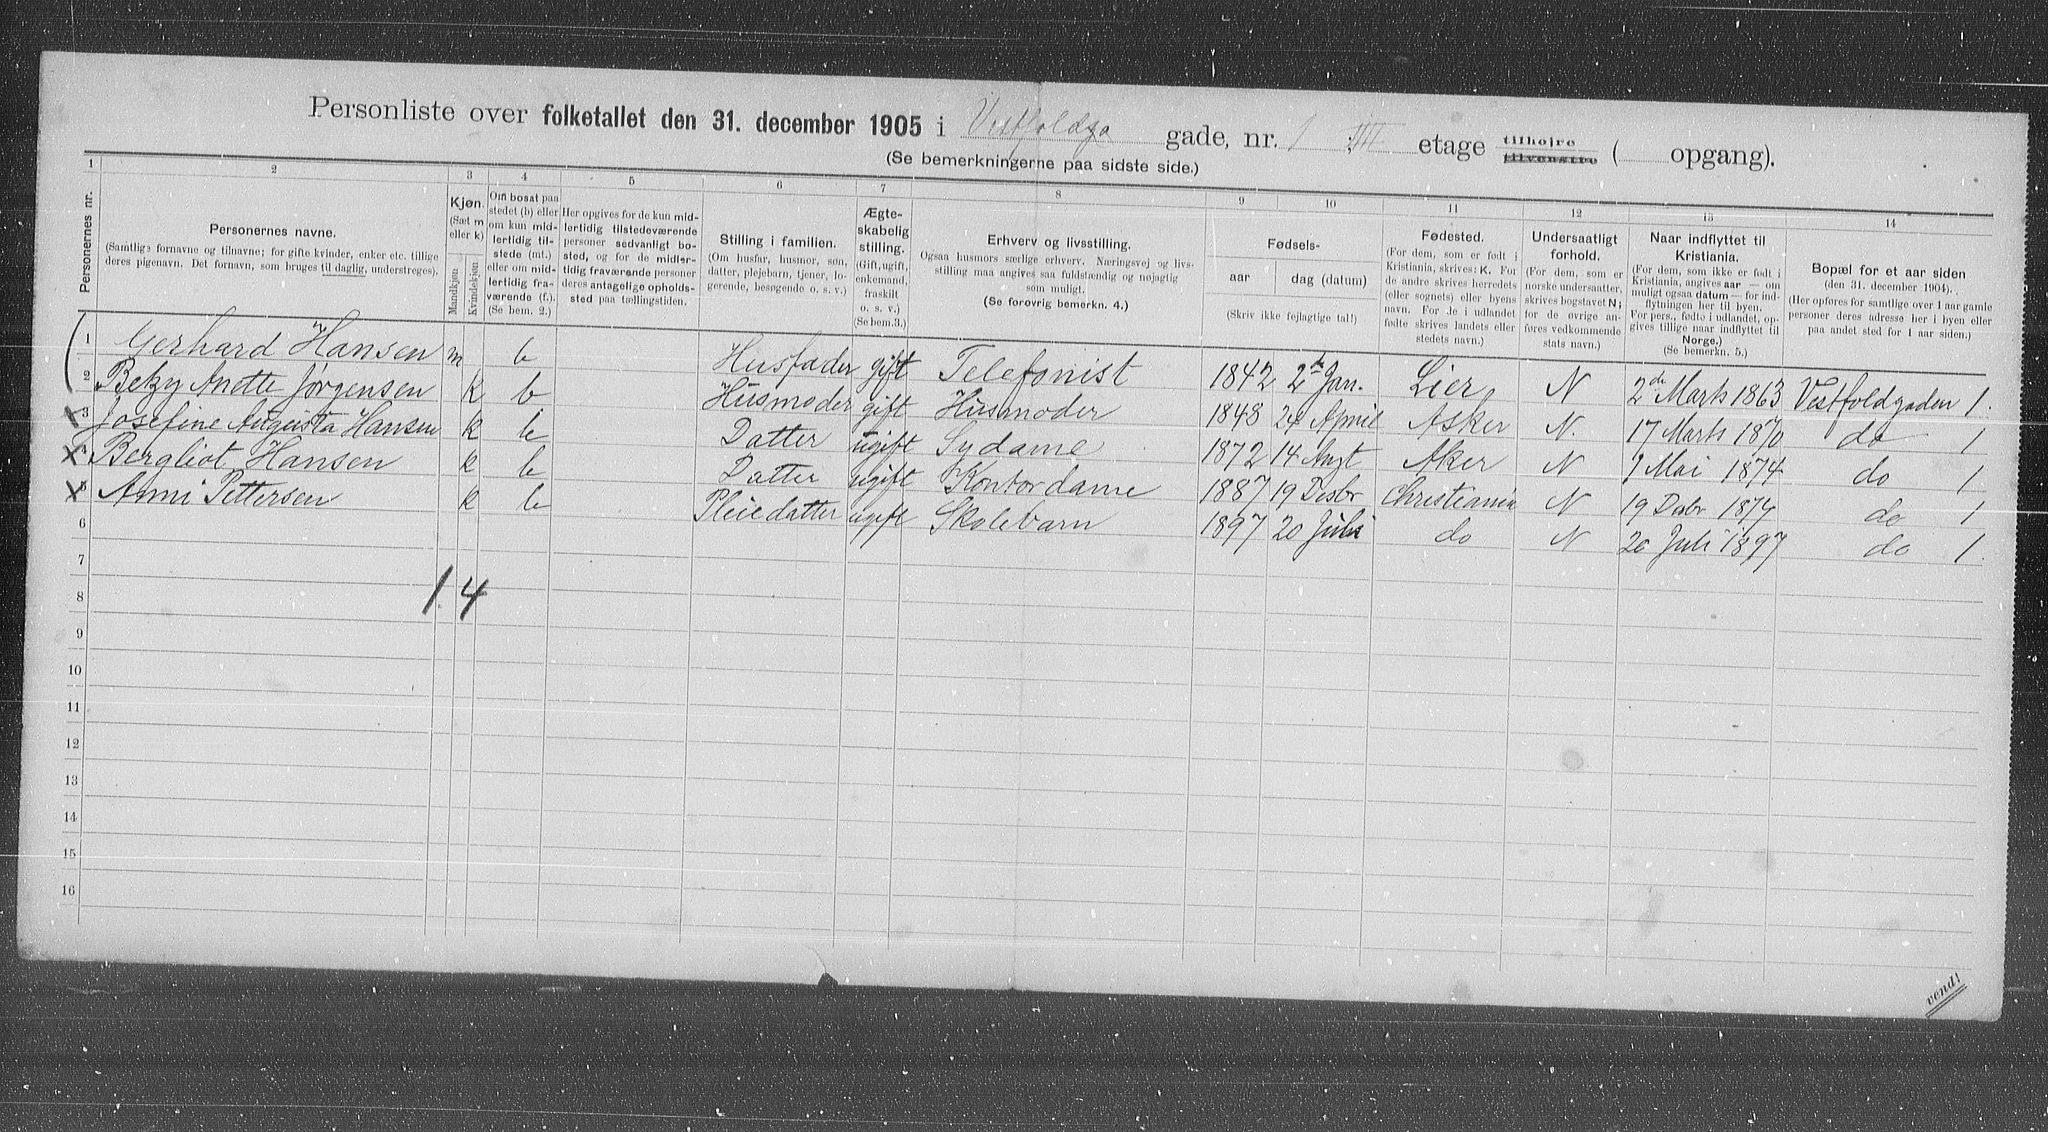 Personliste over folketallet den 31. december 1905 i Vestfoldga gade, nr. 1 III etage tilhøjre tilvenstre ( opgang).
(Se bemerkningerne paa sidste side.)
1 2 3 4 5 6 7 8 9 10 11 12 13 14
Personernes nr.
Personernes navne.
(Samtlige fornavne og tilnavne; for gifte kvinder, enker etc. tillige
deres pigenavn. Det fornavn, som bruges til daglig, understreges).
Kjøn.
(Sæt m
eller k)
Mandkjøn
Kvindekjøn
Om bosat paa
stedet (b) eller
om kun mid-
lertidig til-
stede (mt.)
eller om mid-
lertidig fra-
værende (f.).
(Se bem. 2.)
Her opgives for de kun mid-
lertidig tilstedeværende
personer sedvanligt bo-
sted, og for de midler-
tidig fraværende personer
deres antagelige opholds-
sted paa tællingstiden.
Stilling i familien.
(Om husfar, husmor, søn,
datter, plejebarn, tjener, lo-
gerende, besøgende o. s. v.)
Ægte-
skabelig
stilling.
(Gift, ugift,
enkemand,
fraskilt
o. s. v.)
(Se bem.3.)
Erhverv og livsstilling.
Ogsaa husmors særlige erhverv. Næringsvej og livs-
stilling maa angives saa fuldstændig og nøjagtig
som muligt.
(Se forøvrig bemerkn. 4.)
Fødsels-
aar dag (datum)
(Skriv ikke fejlagtige tal!)
Fødested.
(For dem, som er født i
Kristiania, skrives: K. For
de andre skrives herredets
(eller sognets) eller byens
navn. For de i udlandet
fødte skrives landets eller
stedets navn.)
Undersaatligt
forhold.
(For dem, som er
norske undersaatter,
skrives bogstavet N;
for de øvrige an-
føres vedkommende
stats navn.)
Naar indflyttet til
Kristiania.
(For dem, som ikke er født i
Kristiania, angives aar — om
muligt ogsaa datum — for ind-
flytningen her til byen.
For pers., fødte i udlandet, op-
gives tillige naar indflyttet til
Norge.)
(Se bemerkn. 5.)
Bopæl for et aar siden
(den 31. december 1904).
(Her opføres for samtlige over 1 aar gamle
personer deres adresse her i byen eller
paa andet sted for 1 aar siden.)
1 Gerhard Hansen m b Husfader gift Telefonist 1842 2 Jan. Lier N 2 Marts 1863 Vestfoldgaden 1.
2 Betzy Anette Jørgensen k b Husmoder gift Husmoder 1848 24 April Asker N. 17 Marts 1870 do 1
3 Josefine Augusta Hansen k b Datter ugift Sydame 1872 14 Augt Aker N 1 Mai 1874 do 1
Bergliot Hansen k b Datter ugift Kontordame 1887 19 Desbr Christiania N 19 Desbr 1874 do 1
5 Anni Pettersen k b Pleiedatter ugift Skolebarn 1897 20 Juli do N 20 Juli 1897 do 1.
6
7
8 1. 4
9
10
11
12
13
14
15
16
vend!